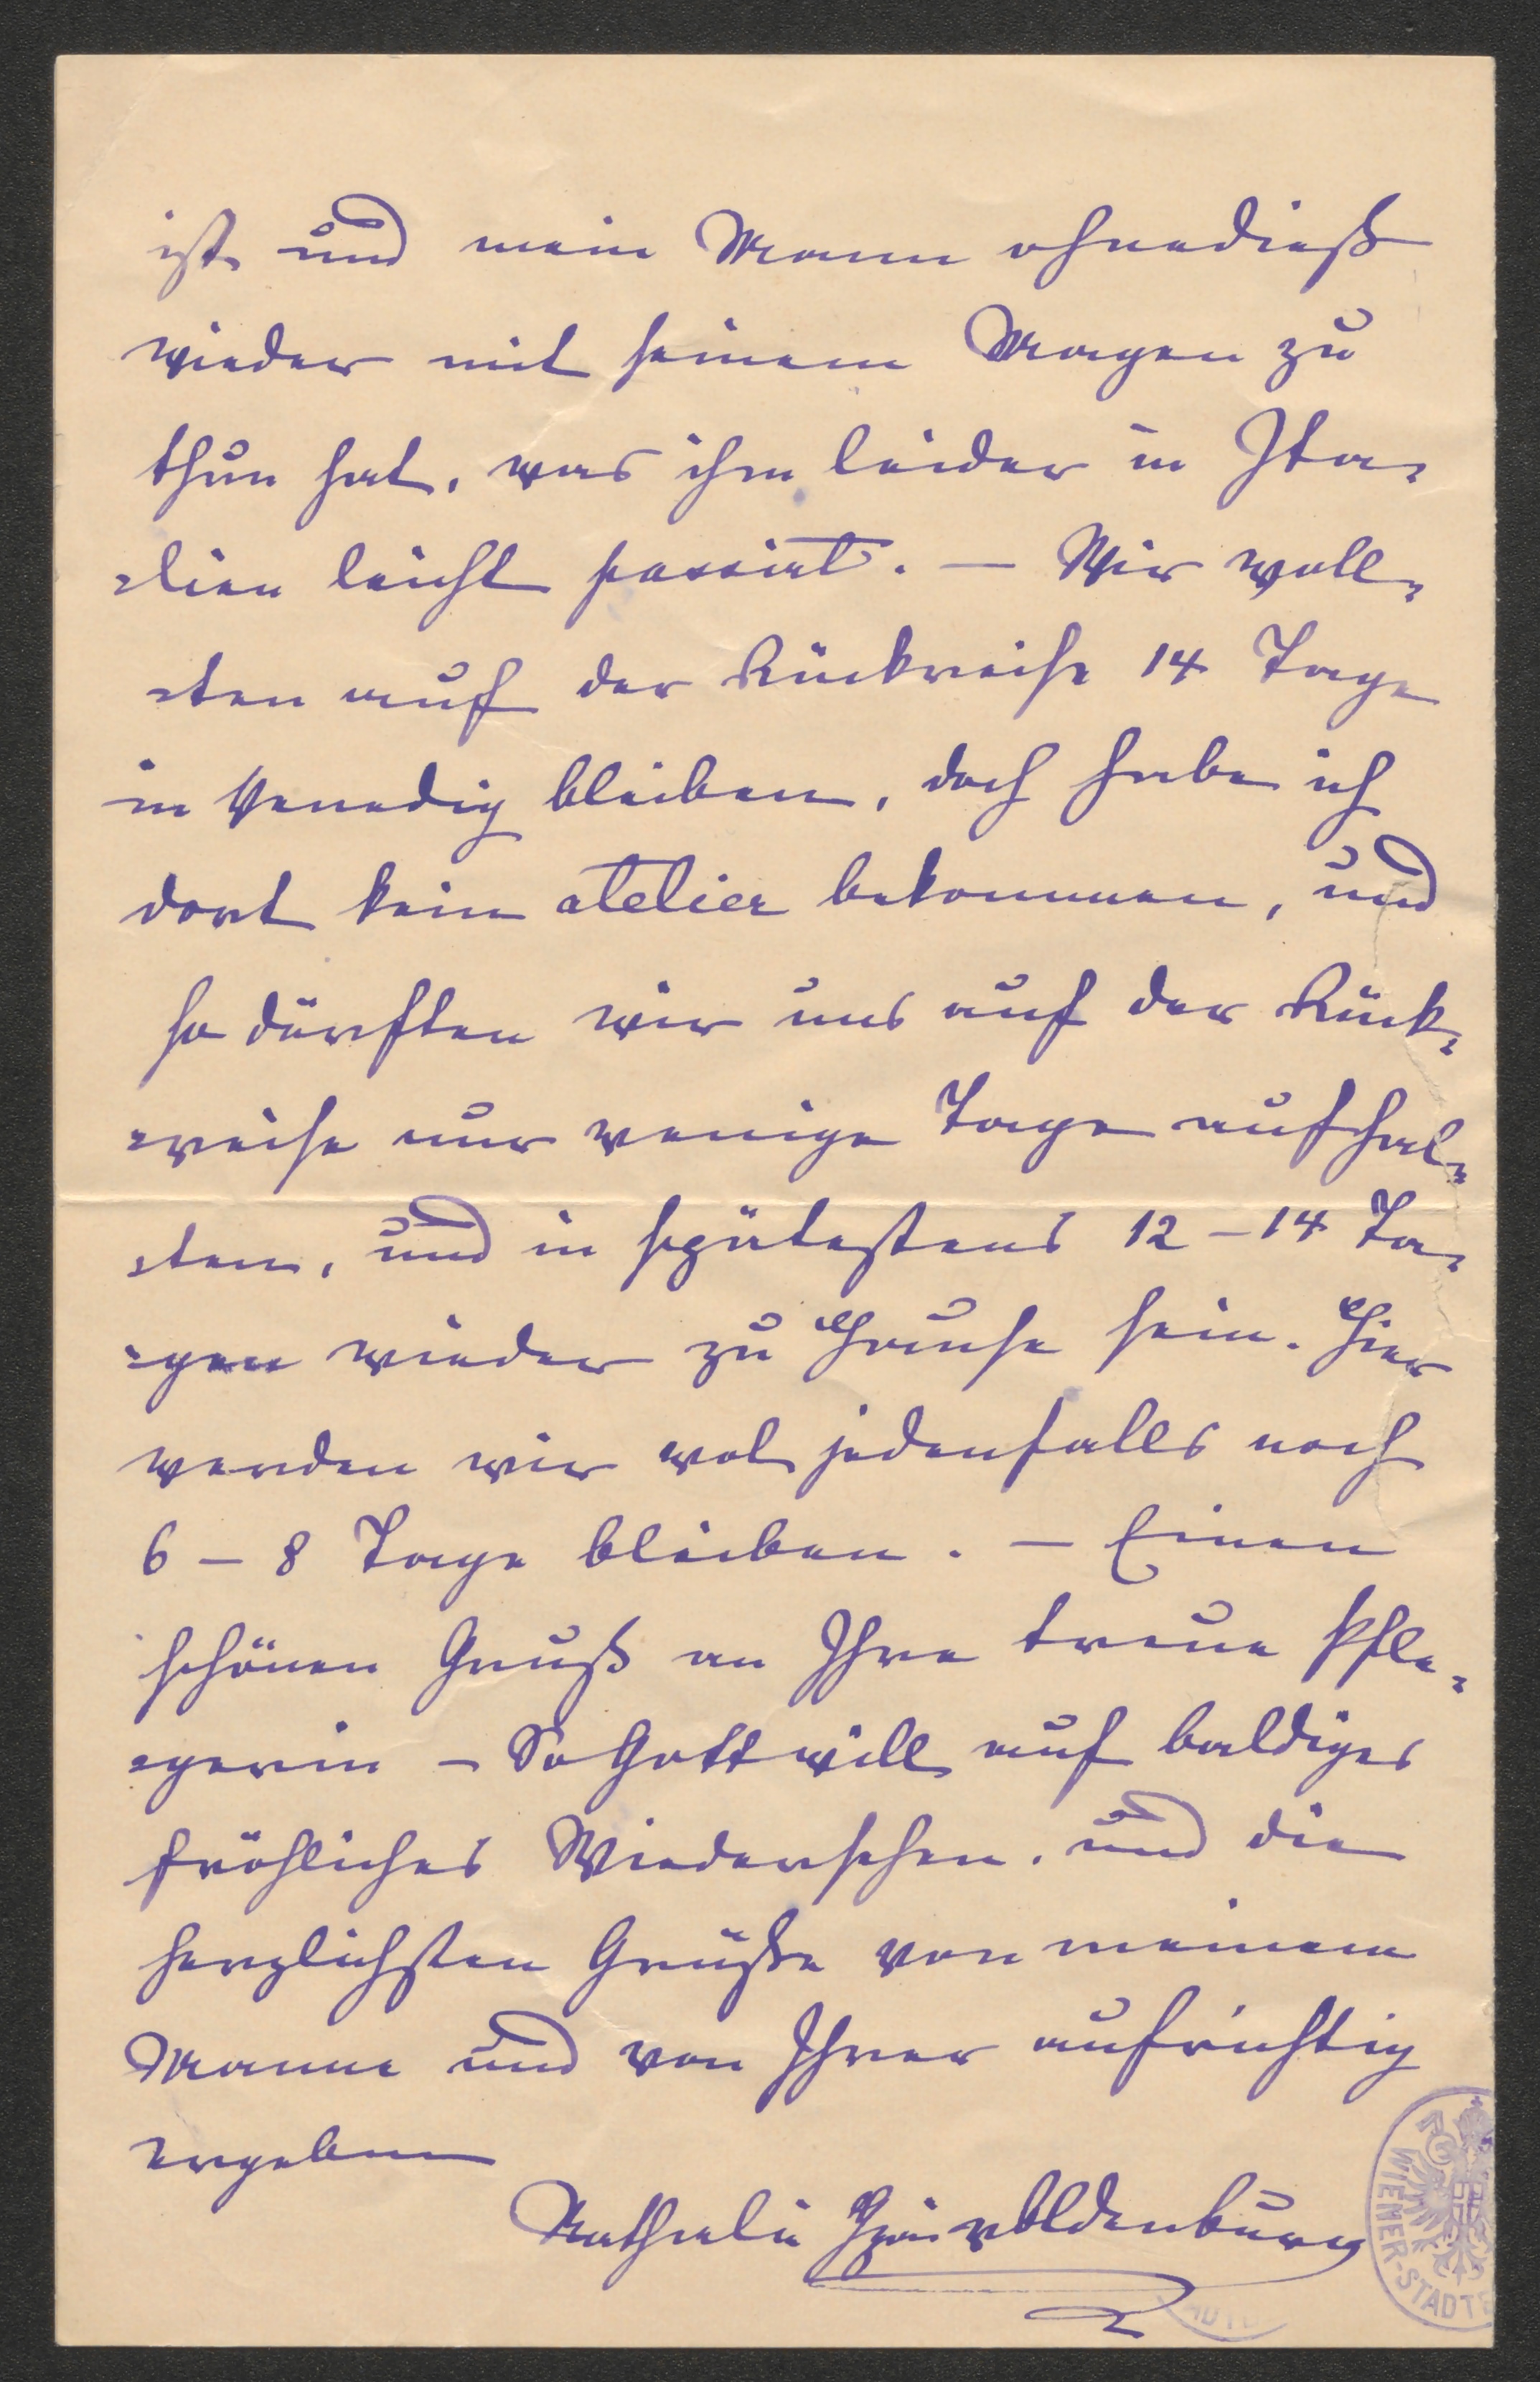 ist und mein Mann ohnedieß
wieder mit seinem Magen zu
thun hat, was ihm leider in Ita-
-lien leicht passirt. — Wir woll-
-ten auf der Rückreise 14 Tage
in Venedig bleiben, doch habe ich
dort kein atelier bekommen, und
so dürften wir uns auf der Rück-
-reise nur wenige Tage aufhal-
-ten, und in spätestens 12 – 14 Ta-
-gen wieder zu Hause sein. Hier
werden wir wol jedenfalls noch
6 – 8 Tage bleiben. — Einen
schönen Gruß an Ihre treue Pfle-
-gerin – So Gott will auf baldiges
fröhliches Wiedersehen, und die
herzlichsten Grüße von meinem
Manne und von Ihrer aufrichtig
ergebnen
Nathalie
WIENER-STADT